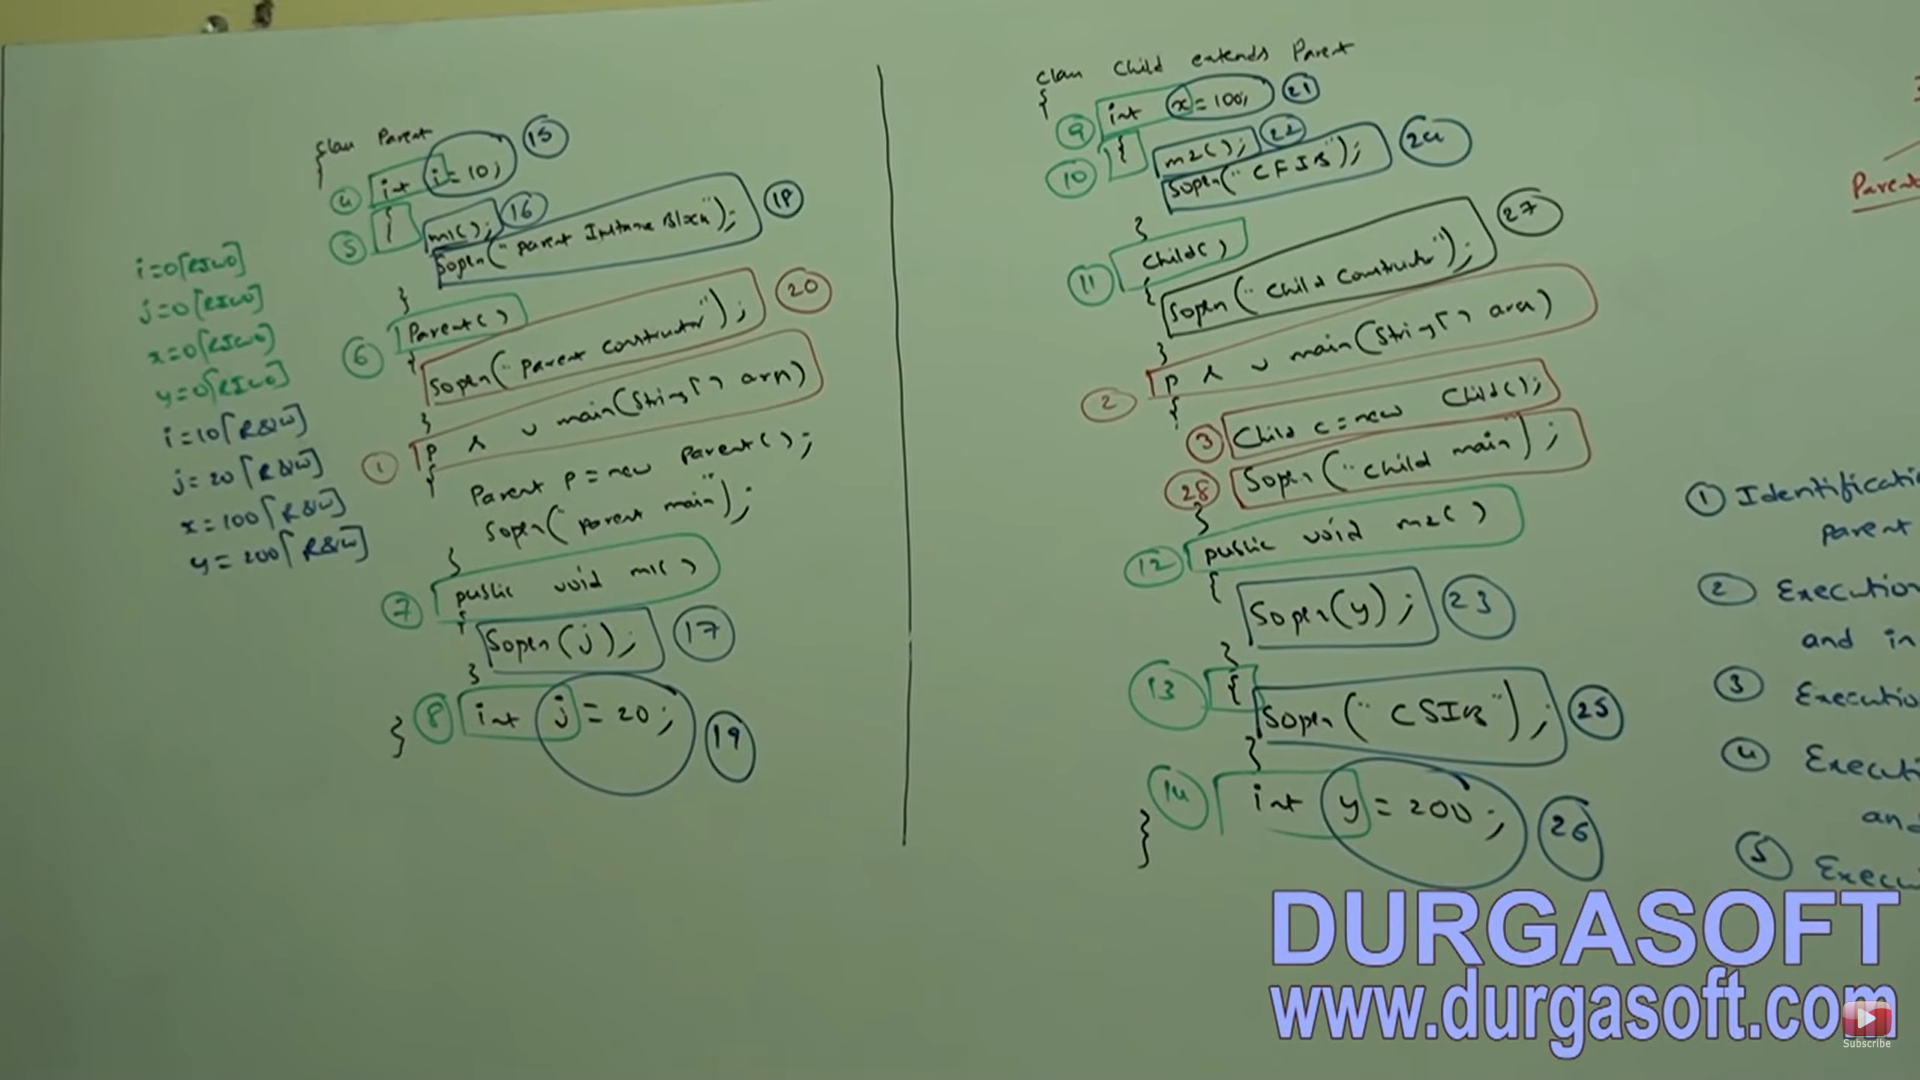 i=0[RIWO]
j=0[RIWO]
x=0[RIWO]
y=0[RIWO]
i=10[R&W]
j=20[R&W]
x=100[R&W]
y=200[R&W]
class Parent
{
4 int i=10; 15
5 { m1(); 16
Sopln("parent Instance Block"); 18
}
6 Parent()
{
Sopln("parent constructor"); 20
}
1 p s v main(String[] args)
{
Parent p=new Parent();
Sopln("parent main");
}
7 public void m1()
{
Sopln(j); 17
}
} 8 int j=20; 19
class Child extends Parent
{
9 int x=100; 21
10 { m2(); 22
Sopln("CFIB"); 24
}
11 Child()
{
Sopln("child constructor"); 27
}
2 p s v main(String[] args)
{
3 Child c=new Child();
28 Sopln("child main");
}
12 public void m2()
{
Sopln(y); 23
}
13 {
Sopln("CSIB"); 25
}
14 int y=200; 26
}
Parent
1 Identificatio
parent
2 Execution
and in
3 Executio
4 Executi
and
5 Execu
DURGASOFT
www.durgasoft.com
Subscribe